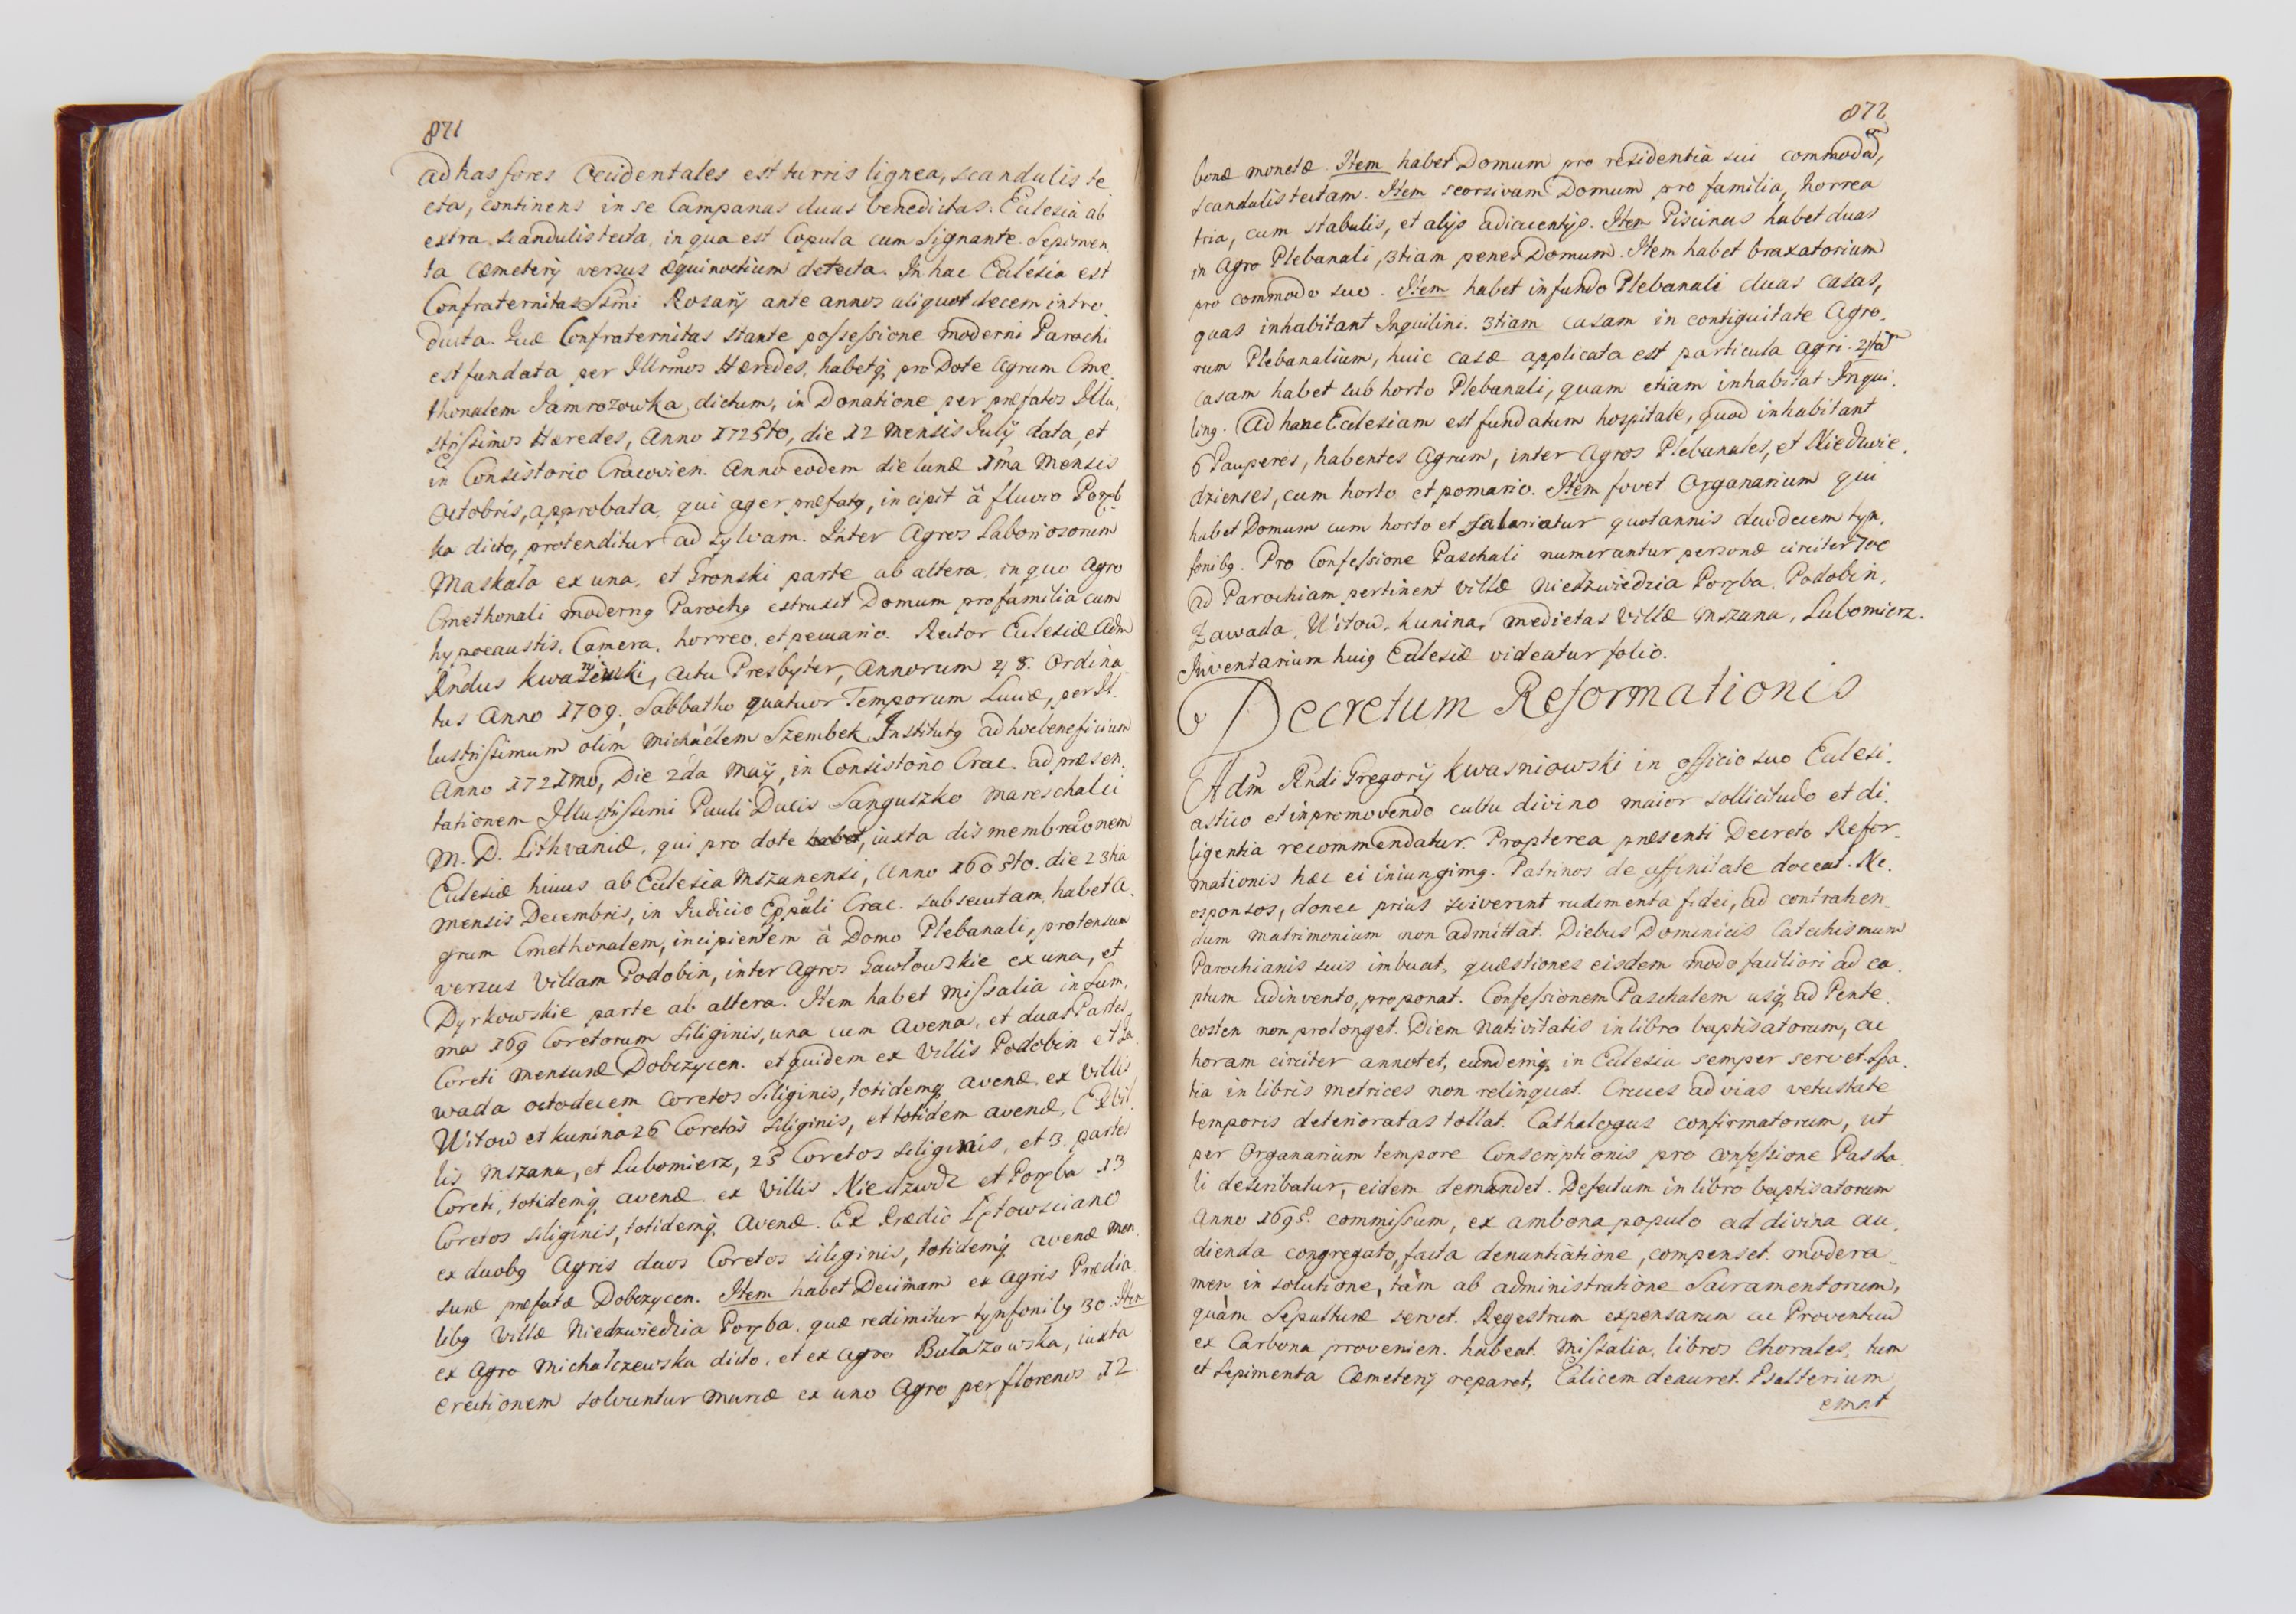 871
ad has fores Occidentales est turris lignea, scandulis te
cta, continens in se Campanas duas benedictas. Ecclesia ab
extra scandulis tecta, in qua est Copula cum Signante. Sepimen
ta Cæmeterij versus æquinoctium detecta. In hac Ecclesia est
Confraternitas SSmi Rosarij ante annos aliquot decem intro.
ducta. Quæ Confraternitas stante possessione moderni Parochi
est fundata per Illrmos Hæredes, habetq pro Dote Agrum Cme
thonalem Jamrozowka dictum, in Donatione per præfatos Illu.
strissimos Hæredes, Anno 1725to, die 12 Mensis Julij data, et
in Consistorio Cracovien. Anno eodem die lunæ 1ma Mensis
Octobris, approbata, qui ager præfatg, incipit à fluvio Poręb
ka dicto, protenditur ad sylvam. Inter Agros Laboriosorum
Maskała ex una, et Gronski parte ab altera, in quo Agro
Cmethonali moderng Parochg extruxit Domum pro familia cum
hypocaustis, Camera, horreo, et pecuario. Rector Ecclesiæ Adm
Rndus Kwaśniewski, actu Presbyter, Annorum 48. Ordina
tus Anno 1709. Sabbatho quatuor Temporum Luciæ, per Il.
lustrissimum olim Michaëlem Szembek Institutg ad hoc beneficium
Anno 1721mo, Die 2da Maij, in Consistorio Crac. ad præsen.
tationem Illustrissimi Pauli Ducis Sanguszko Mareschalci
M. D. Lithvaniæ, qui pro dote habet, iuxta dismembraonem
Ecclesiæ huius ab Ecclesia Mszanensi, Anno 1605to. die 23tia
Mensis Decembris, in Iudicio Eppali Crac. subsecutam, habet A.
grum Cmethonalem, incipientem à Domo Plebanali, protensum
versus Villam Podobin, inter Agros Gawłowskie ex una, et
Dyrkowskie parte ab altera. Item habet Missalia in Sum.
ma 169 Coretorum siliginis, una cum Avena, et duas Partes
Coreti mensuræ Dobczycen. et quidem ex Villis Podobin et Za
wada octodecem Coretos siliginis, totidemq avenæ, ex Villis
Witow et Kunina 26 Coretos siliginis, et totidem avenæ, Ex Vil.
lis Mszana, et Lubomierz, 25 Coretos siliginis, et 3. partes
Coreti, totidemq avenæ ex Villis Niedzwdz et Poręba 13
Coretos siliginis, totidemq Avenæ. Ex Prædio Łętowsciano
ex duobg Agris duos Coretos siliginis, totidemq avenæ men.
suræ præfatæ Dobczycen. Item habet Decimam ex Agris Prædia.
libg Villæ Niedzwiedzia Poręba, quæ redimitur tynfonibg 30. Item
ex Agro Michalczewska dicto, et ex agro Bułaszowska, iuxta
erectionem solvuntur ex uno Agro per florenos 12.
872
bonæ monetæ. Item habet Domum pro residentia sui commodã,
scandulis tectam. Item seorsivam Domum pro familia, horrea
tria, cum stabulis, et alijs adiacentijs. Item Piscinas habet duas
in Agro Plebanali, 3tiam penes Domum. Item habet braxatorium
pro commodo suo. Item habet in fundo Plebanali duas casas,
quas inhabitant Inquilini. 3tiam casam in contiguitate Agro.
rum Plebanalium, huic casæ applicata est particula agri. 4tã
casam habet sub horto Plebanali, quam etiam inhabitat Inqui.
ling. Ad hanc Ecclesiam est fundatum hospitale, quod inhabitant
6 Pauperes, habentes Agrum, inter Agros Plebanales, et Niedzwie.
dzienses, cum horto et pomario. Item fovet Organarium qui
habet Domum cum horto et salariatur quotannis duodecem tyn.
fonibg. Pro Confessione Paschali numerantur personæ circiter 700
ad Parochiam pertinent Villæ Niedzwiedzia Poręba, Podobin,
Zawada, Witow, Kunina, medietas Villæ Mszana, Lubomierz.
Inventarium huig Ecclesiæ videatur folio.
Decretum Reformationis
Adm Rndi Gregorij Kwasniowski in officio suo Ecclesi.
astico et in promovendo cultu divino maior sollicitudo et di.
ligentia recommendatur. Propterea præsenti Decreto Refor.
mationis hæc ei iniungimg. Patrinos de affinitate doceat. Ne.
osponsos, donec prius sciverint rudimenta fidei, ad contrahen
dum Matrimonium non admittat. Diebus Dominicis Catechismum
Parochianis suis imbuat, quæstiones eisdem modo faciliori ad ca.
ptum adinvento, proponat. Confessionem Paschalem usq ad Pente.
costen non prolonget. Diem Nativitatis in libro baptisatorum, ac
horam circiter annotet, eundemq in Ecclesia semper servet. Spa.
tia in libris metrices non relinquat. Cruces ad vias vetustate
temporis deterioratas tollat. Cathalogus confirmatorum, ut
per Organarium tempore Conscriptionis pro confessione Pascha
li describatur, eidem demandet. Defectum in libro baptisatorum
Anno 1695. commissum, ex ambona populo ad divina au.
dienda congregato, facta denuntiatione, compenset. modera
men in solutione, tàm ab administratione Sacramentorum,
quàm Sepulturæ servet. Regestrum expensarum ac Proventuũ
ex Carbona provenien. habeat. Missalia, libros Chorales, tum
et sepimenta Cæmeterij reparet, Calicem deauret. Psalterium
emat